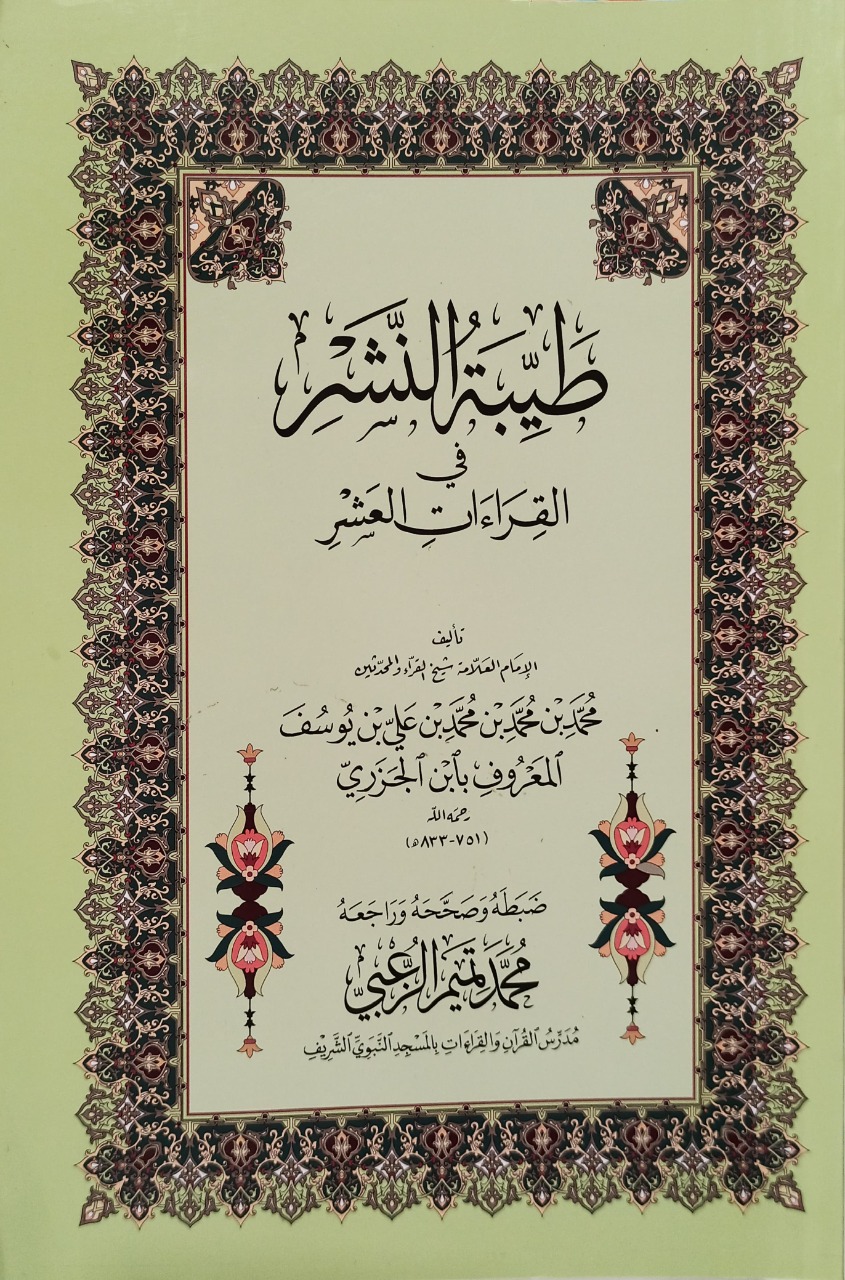 طَيِّبَةُ النَّشْرِ
في
القِرَاءَاتِ العَشْرِ
تأليف
الإمام العلّامة شيخ القرّاء والمحدّثين
مُحَمَّد بْن مُحَمَّد بْن مُحَمَّد بْن عَلِيّ بْن يُوسُفَ
المَعْرُوفِ بِابْنِ الجَزَرِيّ
رحمه الله
(٧٥١-٨٣٣هـ)
ضَبَطَهُ وَصَحَّحَهُ وَرَاجَعَهُ
مُحَمَّد تَمِيم الزُّعْبِيّ
مُدَرِّسُ القُرْآنِ وَالقِرَاءَاتِ بِالمَسْجِدِ النَّبَوِيِّ الشَّرِيفِ